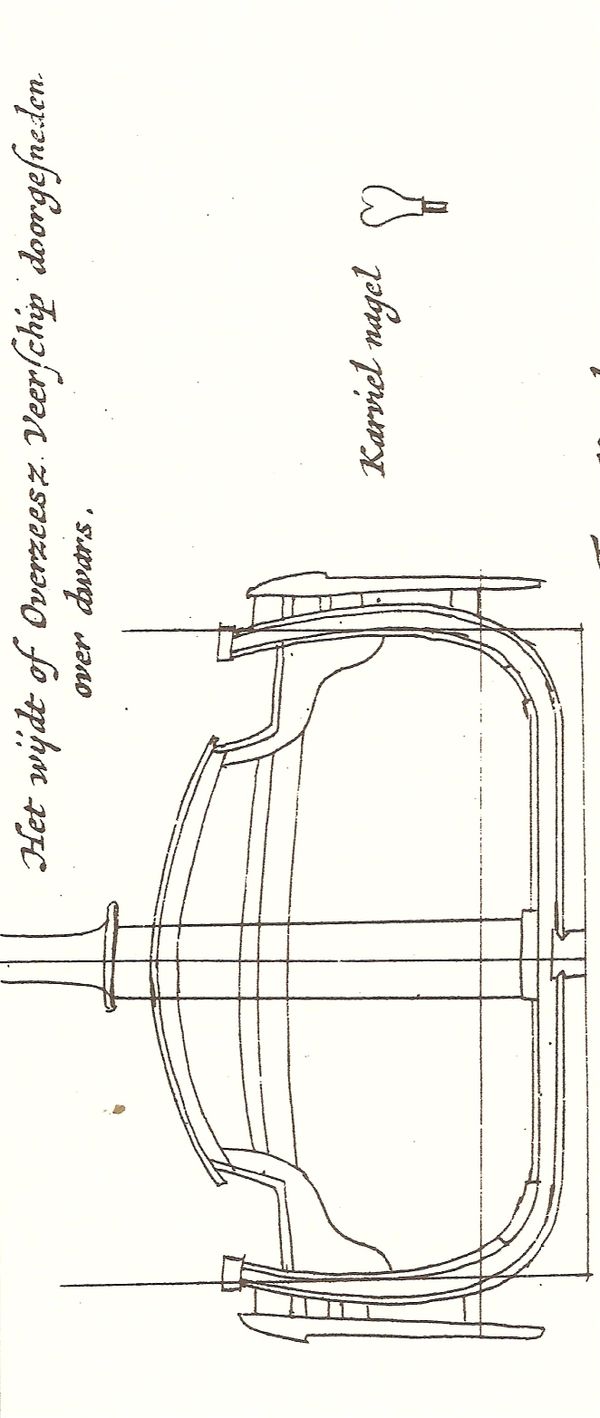 Het wÿdt of Overzees z. Veerſchip doorgeſneden.
over dwars.
Karviel nagel